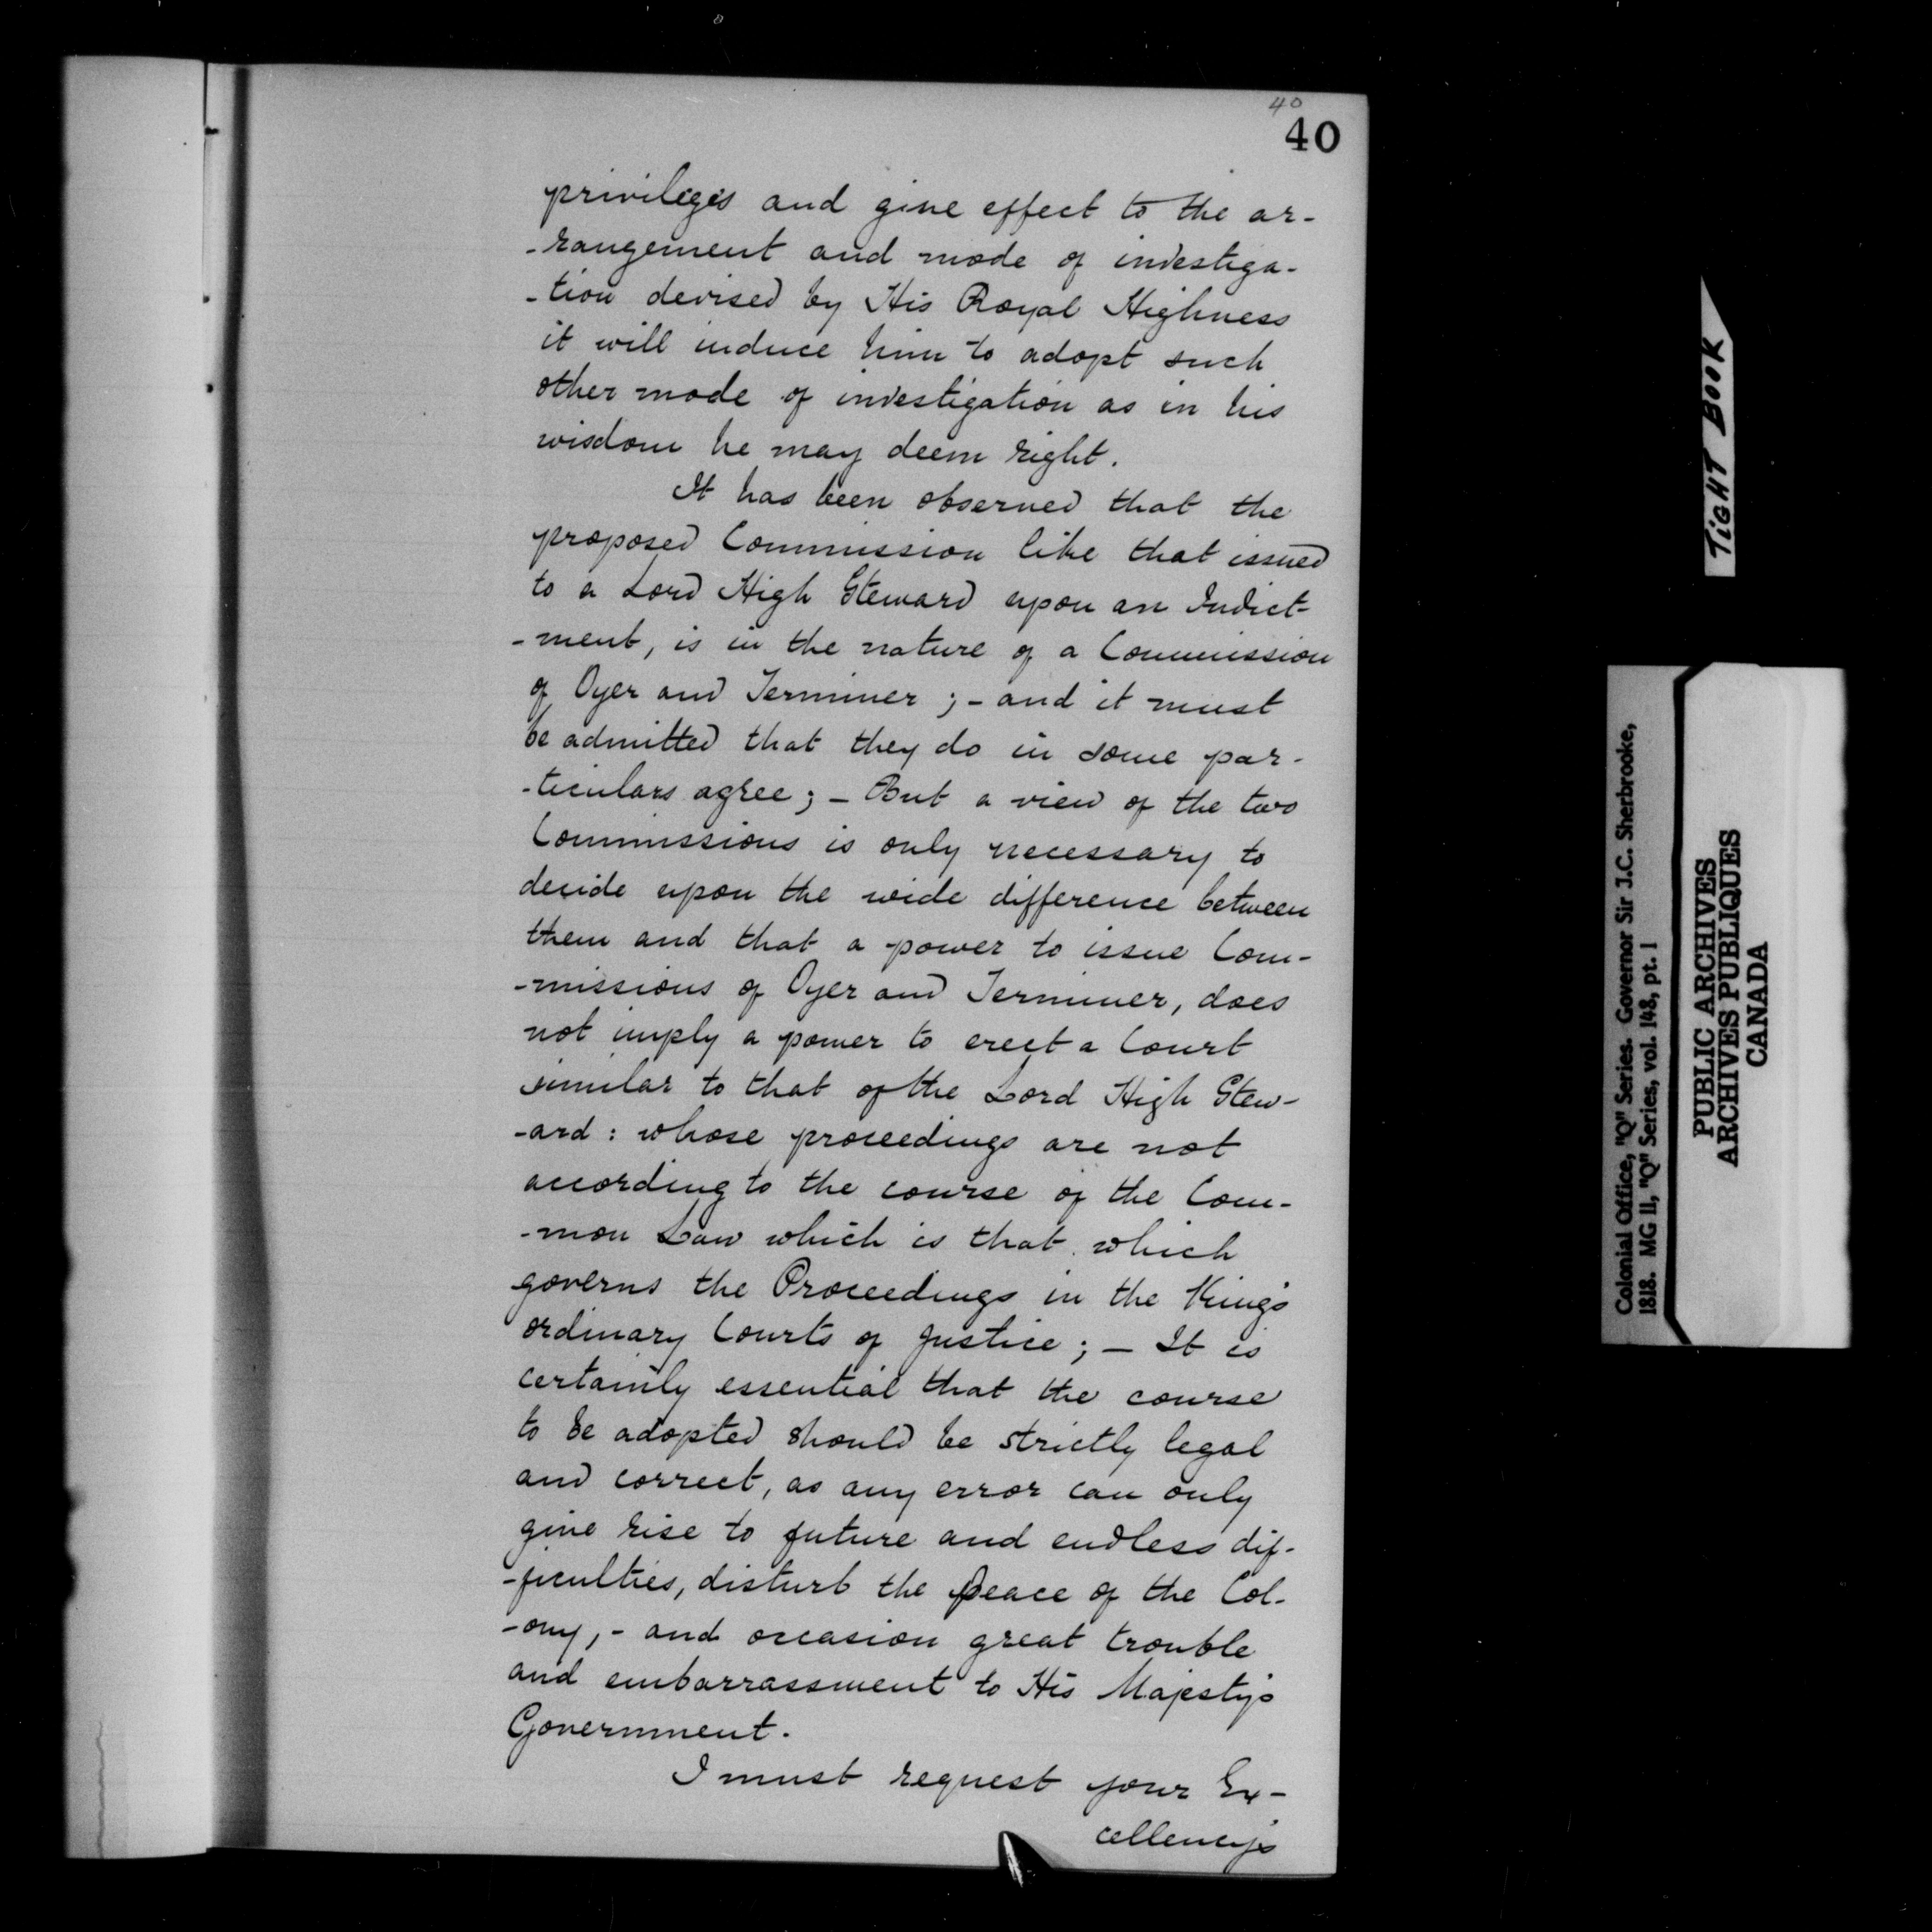 40
40
privileges and give effect to the ar-
-rangement and mode of investiga-
-tion devised by His Royal Highness
it will induce him to adopt such
other mode of investigation as in his
wisdom he may deem right.
It has been observed that the
proposed Commission like that issued
to a Lord High Steward upon an Indict-
-ment, is in the nature of a Commission
of Oyer and Terminer; - and it must
be admitted that they do in some par-
-ticulars agree; - But a view of the two
Commissions is only necessary to
decide upon the wide difference between
them and that a power to issue Com-
-missions of Oyer and Terminer, does
not imply a power to erect a Court
similar to that of the Lord High Stew-
-ard: whose proceedings are not
according to the course of the Com-
-mon Law which is that which
governs the Proceedings in the King's
ordinary Courts of Justice; - It is
certainly essential that the course
to be adopted should be strictly legal
and correct, as any error can only
give rise to future and endless dif-
-ficulties, disturb the peace of the Col-
-ony, - and occasion great trouble
and embarrassment to His Majesty's
Government.
I must request your Ex-
cellency's
TIGHT BOOK
Colonial Office, "Q" Series. Governor Sir J.C. Sherbrooke,
1818. MG 11, "Q" Series, vol. 148, pt. 1
PUBLIC ARCHIVES
ARCHIVES PUBLIQUES
CANADA